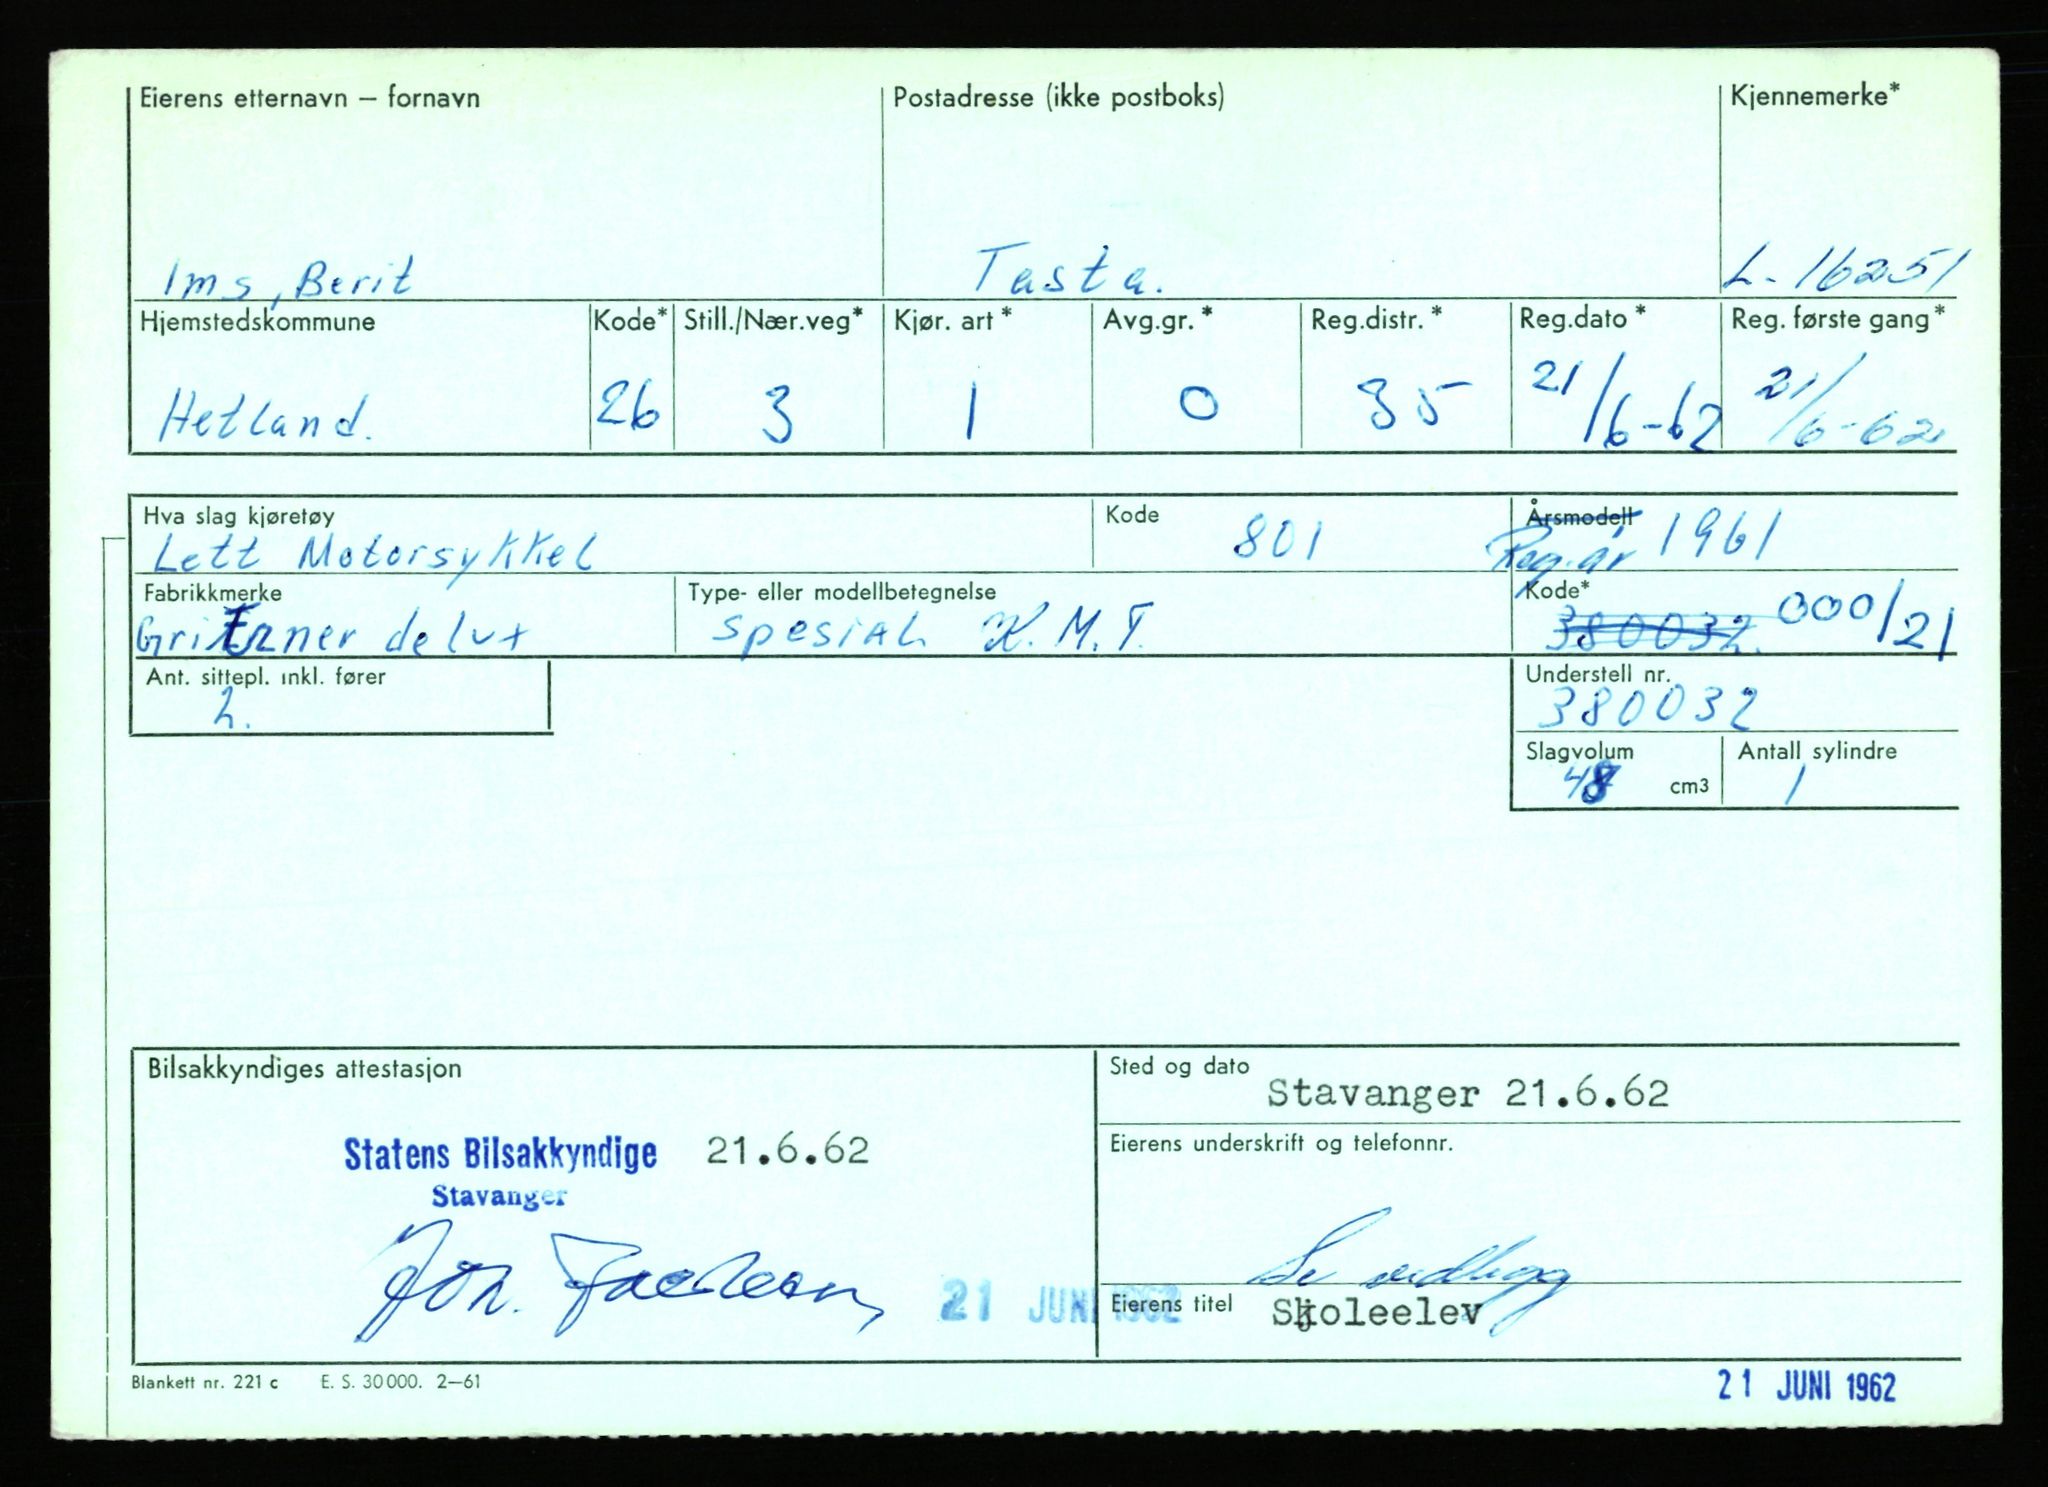 Eierens etternavn — fornavn Postadresse (ikke postboks) Kjennemerke*
Ims, Berit Tasta. L-16251
Hjemstedskommune Kode* Still./Nær.veg* Kjør. art* Avg.gr.* Reg.distr.* Reg.dato* Reg. første gang*
Hetland. 26 3 1 0 35 21/6-62 21/6-62
Hva slag kjøretøy Kode Årsmodell
Lett Motorsykkel 801 Reg.år 1961
Fabrikkmerke Type- eller modellbetegnelse Kode*
Gritzner delux spesial K.M.T. 380032. 000/21
Ant. sittepl. inkl. fører Understell nr.
2. 380032
Slagvolum Antall sylindre
48 cm3 1
Bilsakkyndiges attestasjon Sted og dato
Stavanger 21.6.62
Statens Bilsakkyndige 21.6.62 Eierens underskrift og telefonnr.
Stavanger
Se vedlegg
21 JUNI 1962 Eierens titel Skoleelev
Blankett nr. 221 c E. S. 30000. 2—61 21 JUNI 1962